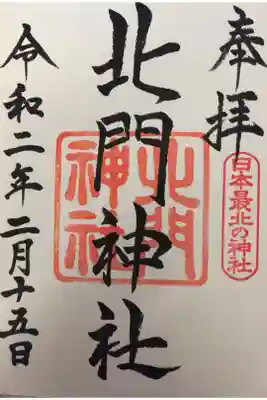 奉拝
日本最北の神社
北門神社
北門神社
令和二年二月十五日